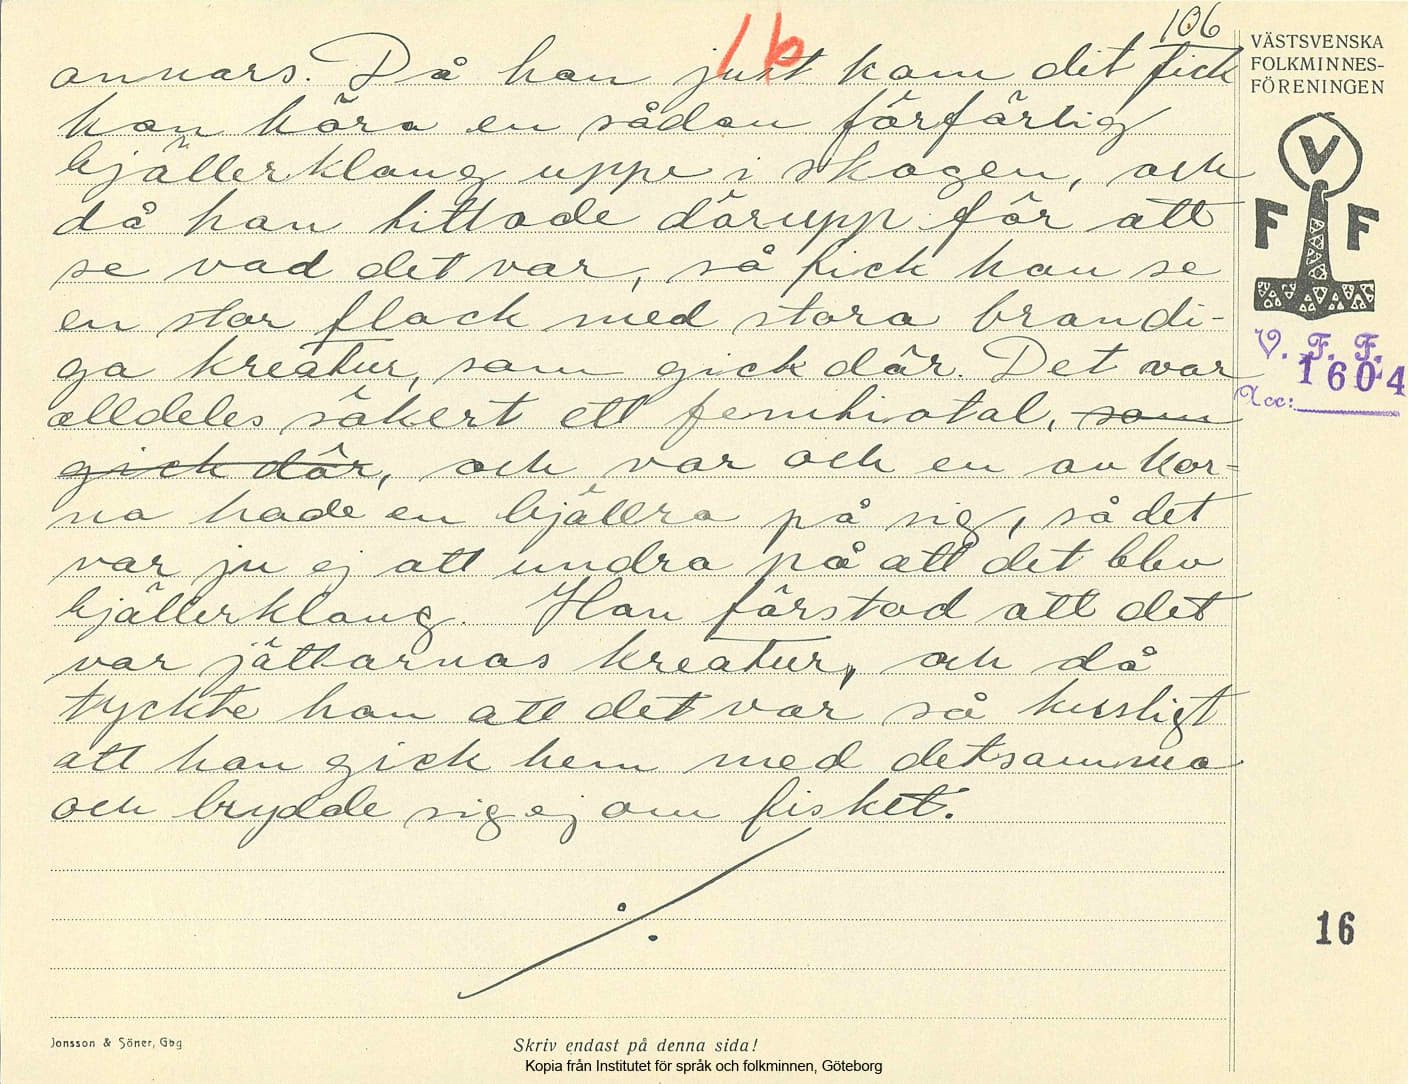 106
16
annars. Då han just kom dit fick
han höra en sådan förfärlig
bjällerklang uppe i skogen, och
då han tittade därupp för att
se vad det var, så fick han se
en stor flock med stora brandi-
ga kreatur, som gick där. Det var
alldeles säkert ett femtiotal, som
gick där, och var och en av kor-
na hade en bjällra på sig, så det
var ju ej att undra på att det blev
bjällerklang. Han förstod att det
var jättarnas kreatur, och då
tyckte han att det var så kusligt
att han gick hem med detsamma
och brydde sig ej om fisket.
VÄSTSVENSKA
FOLKMINNES-
FÖRENINGEN
V
F F
V. F. F.
1604
Acc:
16
Jonsson & Söner, Gbg
Skriv endast på denna sida!
Kopia från Institutet för språk och folkminnen, Göteborg